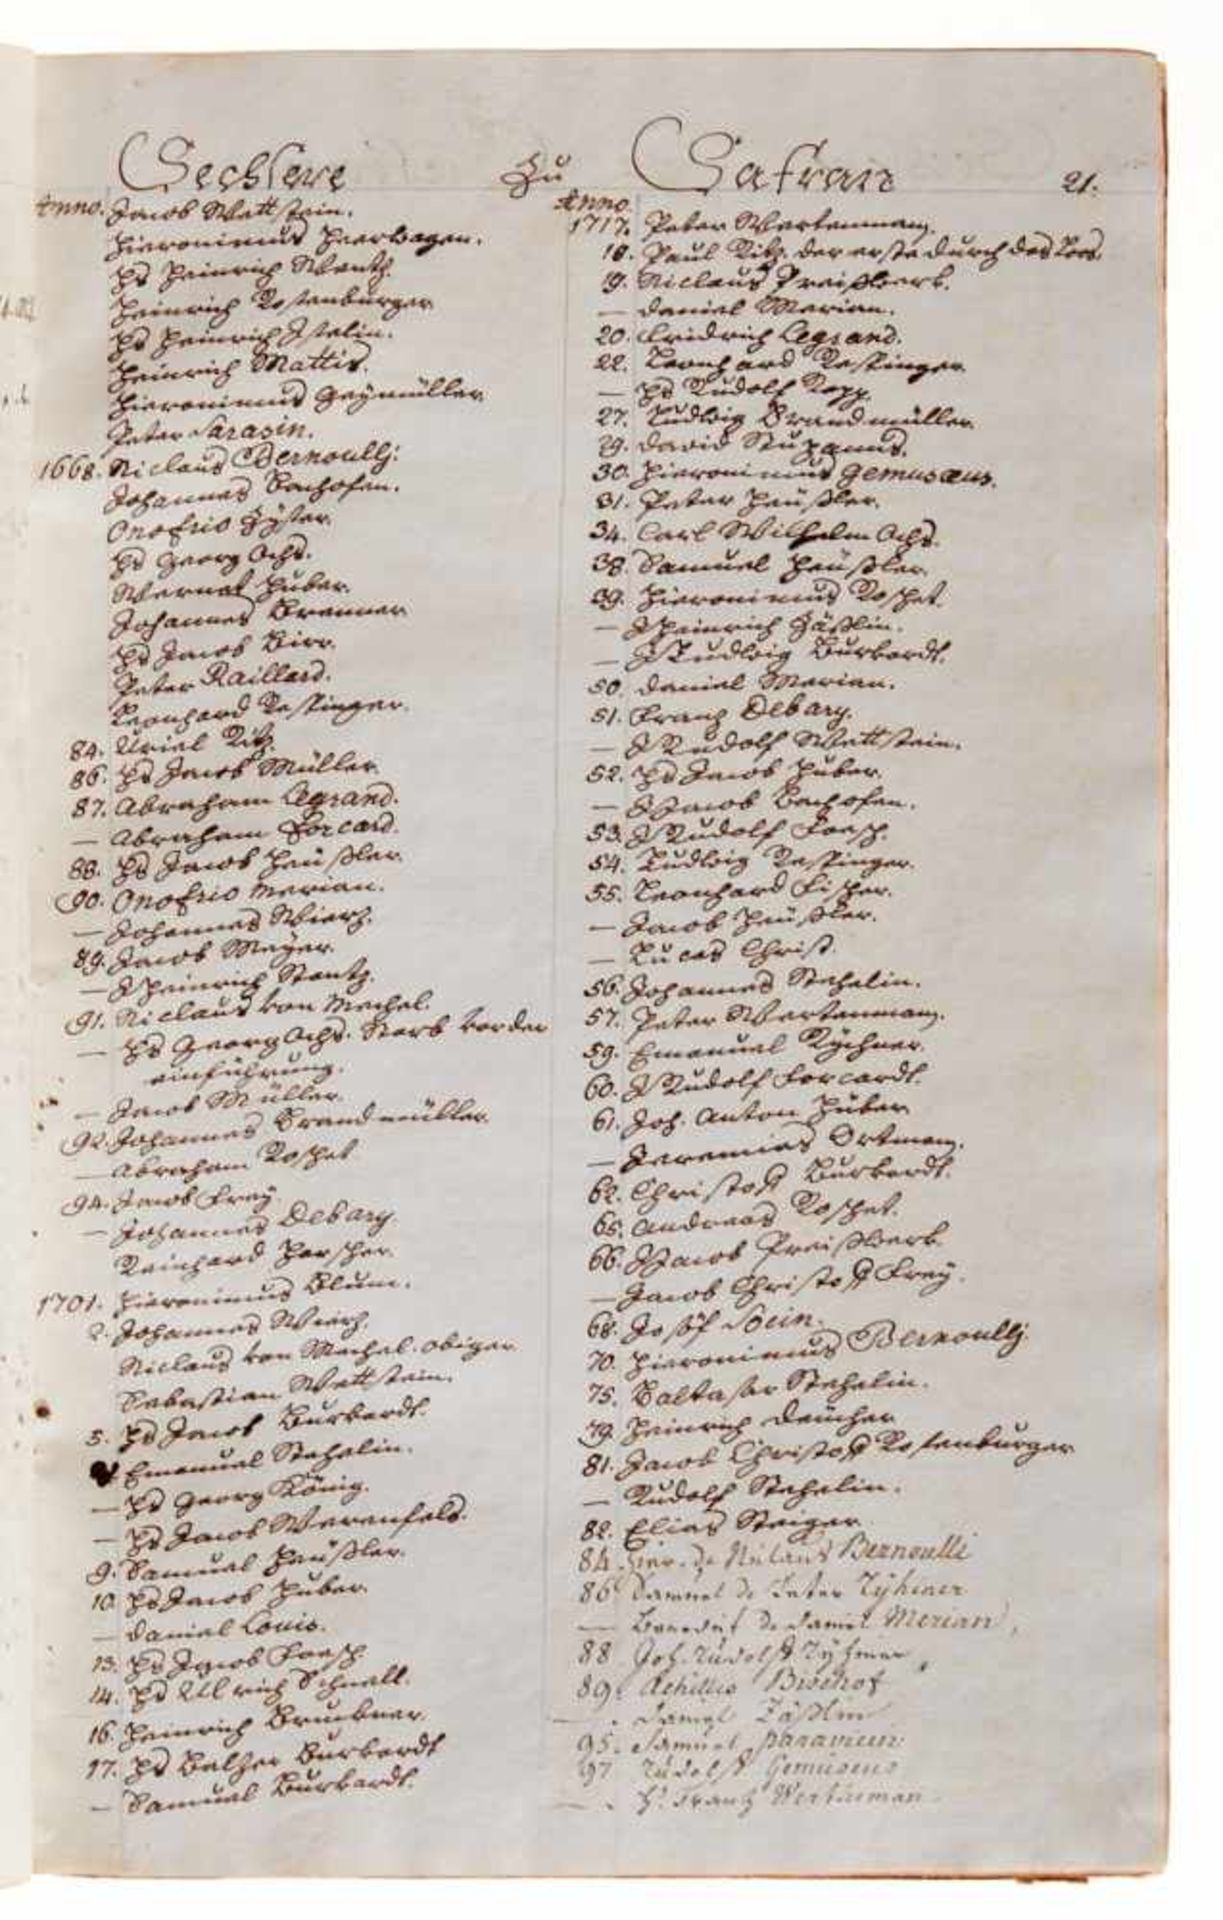 Sechsere Zu Safran 21.
Anno. Jacob Wettstein.
Hieronimus Heerwagen.
Hs Heinrich Wentz.
Heinrich Rosenburger
Hs Heinrich Iselin.
Heinrich Mattis.
Hieronimus Geymüller
Peter Sarasin.
1668. Niclaus Bernoullj:
Johannes Bachofen.
Onofrio Gyster.
Hs Georg Ochs.
Wernet Huber.
Johannes Brenner
Hs Jacob Birr.
Peter Raillard.
Leonhard Respinger.
84. Uriel Ritz.
86. Hs Jacob Müller
87. Abraham Legrand.
— Abraham Forcard.
88. Hs Jacob Heüssler.
90. Onofrio Merian.
— Johannes Wierz.
89. Jacob Meyer.
— J Heinrich Stentz.
91. Niclaus von Mechel.
— Hs Georg Ochs. Starb vor der
einführung.
— Jacob Müller.
92. Johannes Brandmüller
— Abraham Roschet
94. Jacob Frey.
— Johannes Debary.
Reinhard Horscher.
1701. Hieronimus Blum.
2. Johannes Wierz.
Niclaus von Mechel. obiger
Sebastian Wettstein.
5. Hs Jacob Burkardt.
Emanuel Stehelin.
— Hs Georg König.
— Hs Jacob Werenfels.
9. Samuel Heüssler.
10. Hs Jacob Huber.
— Daniel Louis.
13. Hs Jacob Faesch
14. Hs Ullrich Schnell.
16. Heinrich Bruckner
17. Hs Balzer Burkardt
— Samuel Burkardt.
Anno
1717. Peter Wertenmann.
18. Paul Ritz. der erste durch das Loos.
19. Niclaus Preisswerk.
— Daniel Merian.
20. Fridrich Legrand.
22. Leonhard Respinger
— Hs Rudolf Rapp.
27. Ludwig Brandmüller
29. David Stupanus.
30. Hieronimus Gemusæus.
31. Peter Heüssler.
34. Carl Wilhelm Ochs.
38. Samuel Heüssler
39. Hieronimus Roschet.
— J Heinrich Zässlin.
— J Ludwig Burkardt.
50. Daniel Merian.
51. Franz Debary.
— J Rudolf Wettstein.
52. Hs Jacob Huber.
— J Jacob Bachofen.
53. J Rudolf Faesch.
54. Ludwig Respinger.
55. Leonhard Fischer.
— Jacob Heüssler.
— Lucas Christ.
56. Johannes Stehelin.
57. Peter Wertenmann.
59. Emanuel Rÿchner
60. J Rudolf Forcardt.
61. Joh. Anton Huber
— Jeremias Ortmann.
62. Christoff Burkardt.
65. Andreas Roschet.
66. J Jacob Preisswerk
— Jacob Christoff Frey.
68. Josëf Socin.
70. Hieronimus Bernoullj
75. Baltasar Stehelin.
79. Heinrich Deucher
81. Jacob Christoff Rosenburger
— Rudolf Stehelin.
82. Elias Steiger
84. Hier. de Niclaus Bernoulli
86 Samuel de Peter Ryhiner
— Benedict de Daniel Merian,
88 Joh. Rudolff Ryhiner
89. Achilles Bischof
— Daniel Zässlin
95. Samuel paravicin
97 Rudolff Gemuseus
— Hs. Frantz Wertheman